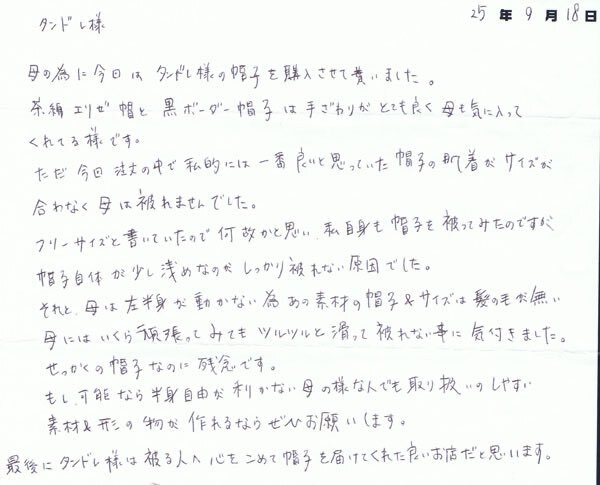 25 年 9 月 18 日
タンドレ様
母の為に今回は タンドレ様の帽子を購入させて貰いました。
茶綿 エリゼ帽と 黒ボーダー帽子 は手ざわりが とても良く 母も気に入って
くれてる様です。
ただ 今回 注文の中で 私的には 一番 良いと思っていた 帽子の肌着が サイズが
合わなく 母は被れませんでした。
フリーサイズと書いていたので 何故かと思い、私自身も 帽子を 被ってみたのですが
帽子自体 が少し 浅めなのが しっかり被れない原因でした。
それと、母は左半身が 動かない為 あの素材の帽子&サイズは髪の毛が無い
母には いくら頑張ってみても ツルツルと滑って 被れない事に 気付きました。
せっかくの帽子なのに 残念です。
もし、可能なら 半身自由が 利かない 母の様な人でも 取り扱いのしやすい
素材&形の物が 作れるなら ぜひお願いします。
最後に タンドレ様は 被る人へ 心をこめて 帽子を届けてくれた良いお店だと思います。